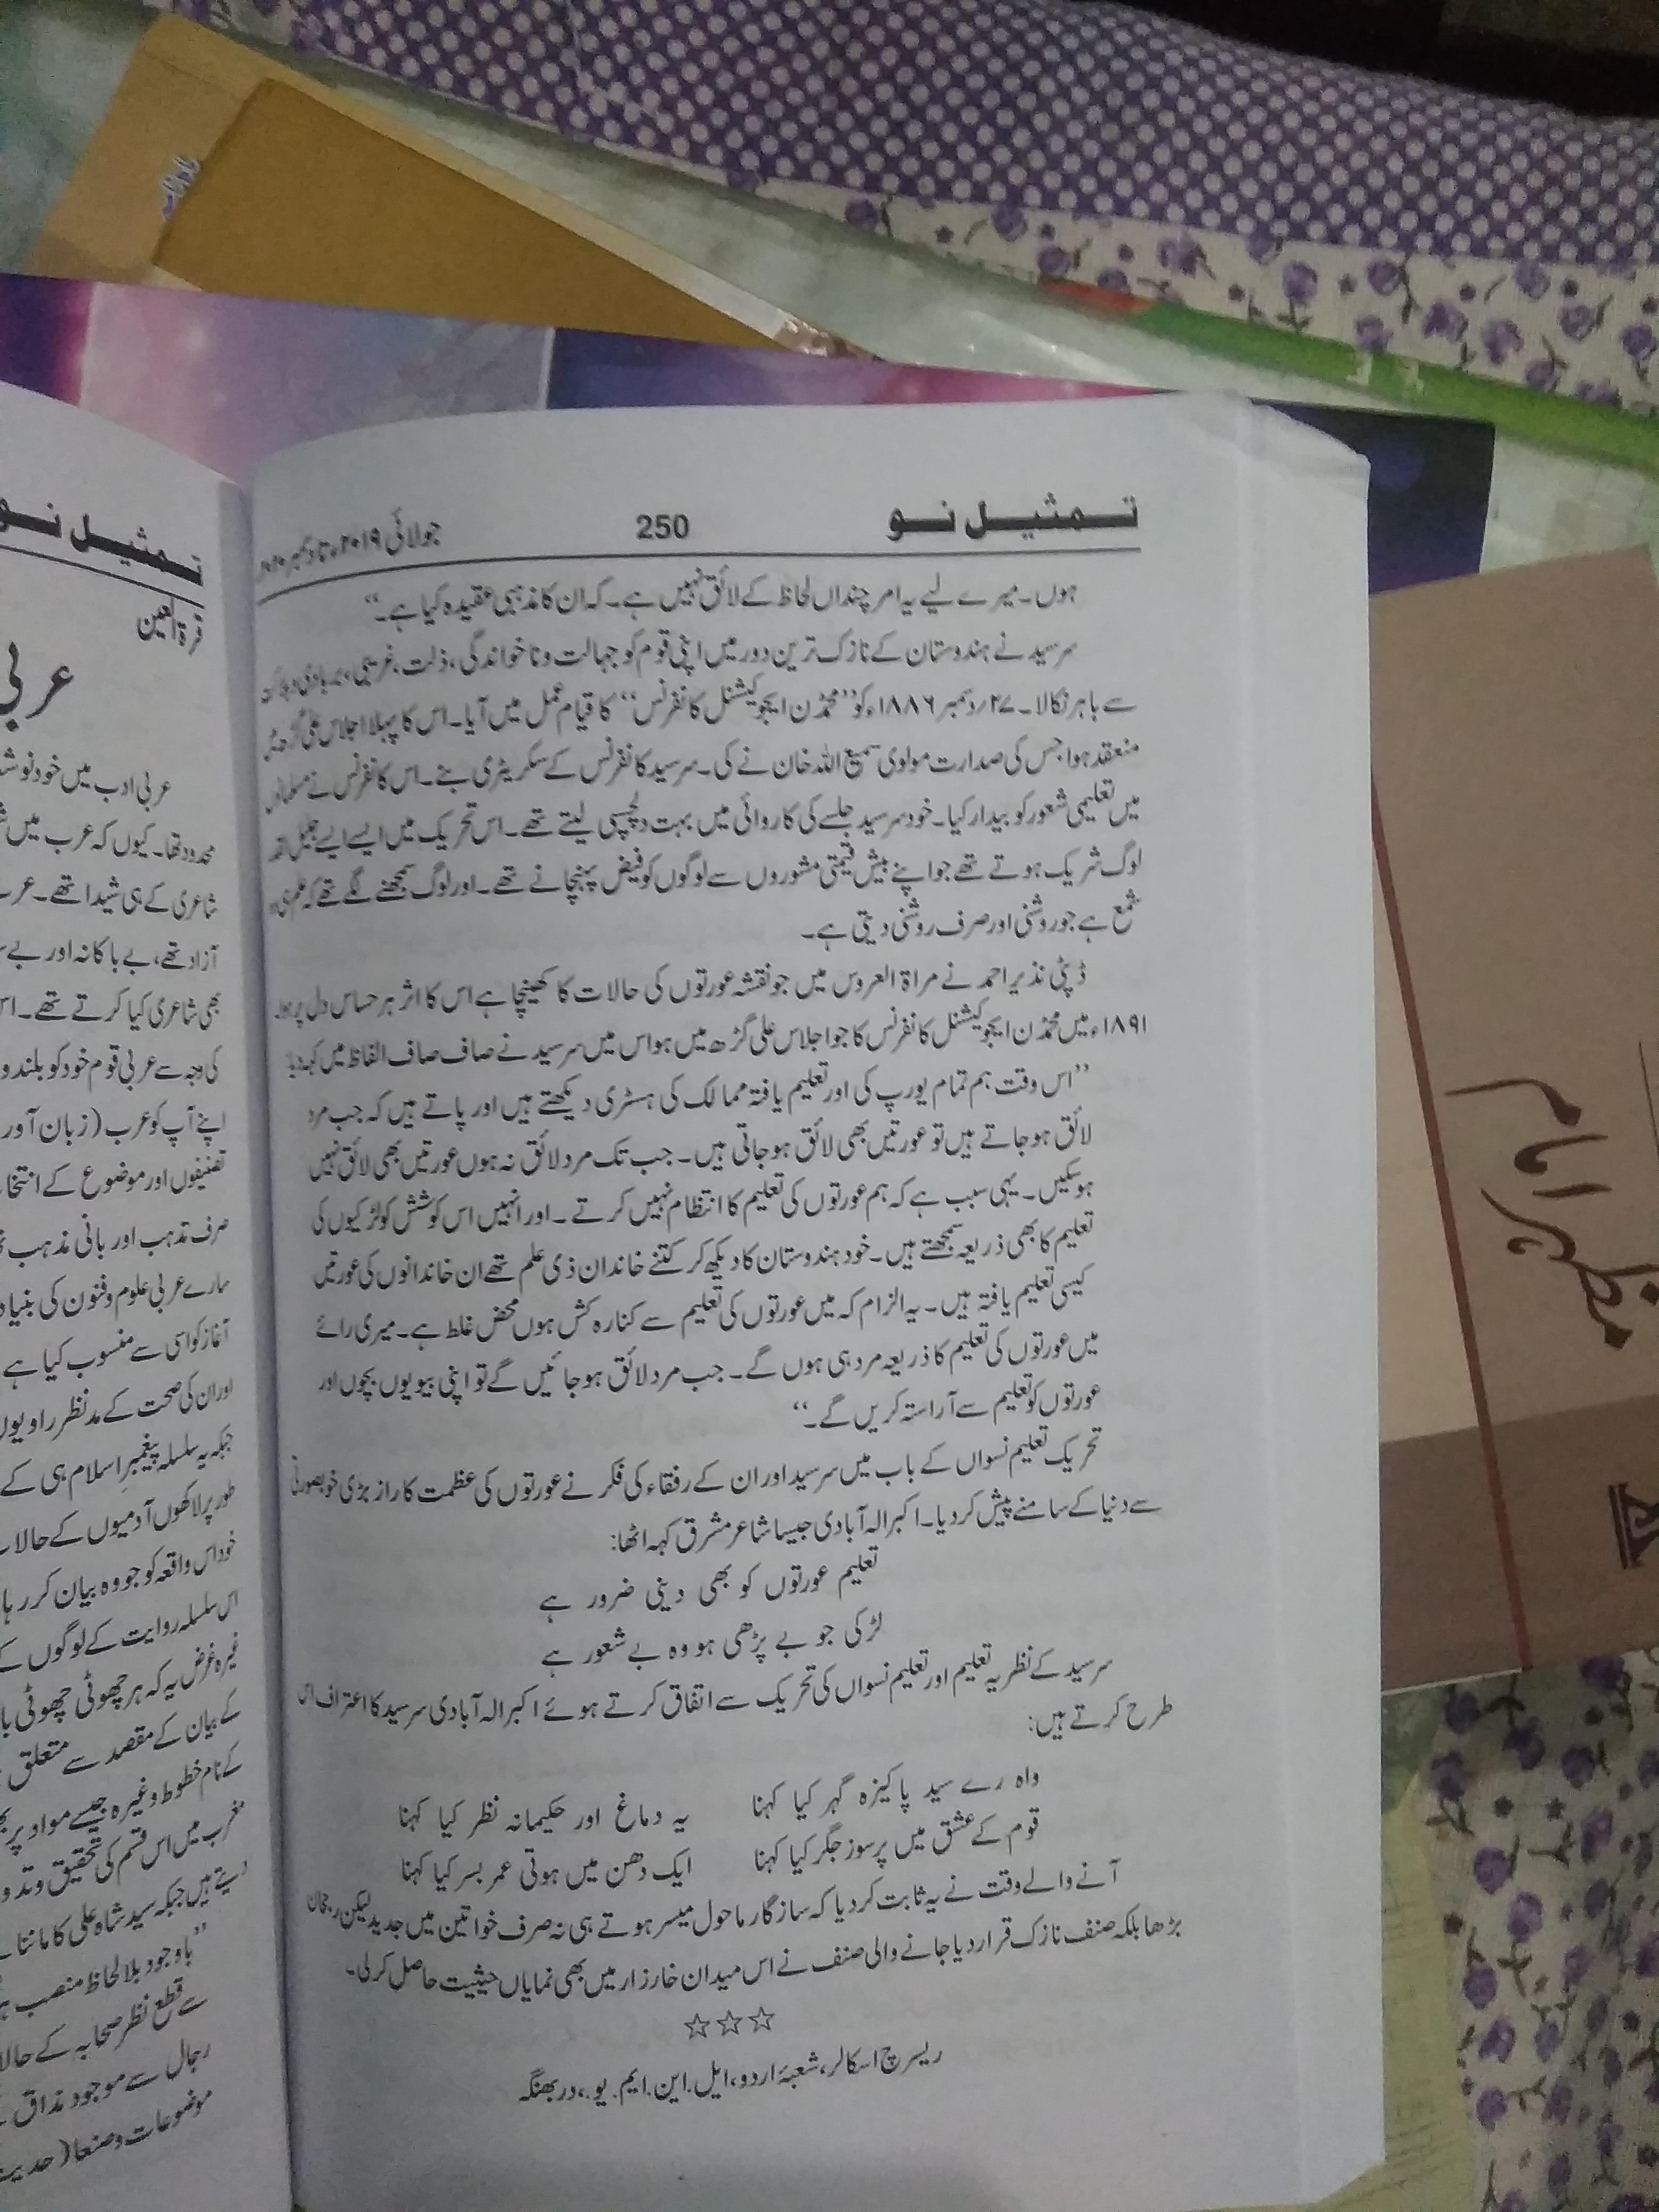 تمثیل نو 250 جولائی ۲۰۱۹ء تا دسمبر ۲۰۲۰ء
ہوں۔ میرے لیے یہ امر چنداں لحاظ کے لائق نہیں ہے۔ کہ ان کا مذہبی عقیدہ کیا ہے۔‘‘
سرسید نے ہندوستان کے نازک ترین دور میں اپنی قوم کو جہالت و ناخواندگی، ذلت، غریبی،
سے باہر نکالا۔ ۲۷؍دسمبر ۱۸۸۶ء کو ’’محمڈن ایجوکیشنل کانفرنس‘‘ کا قیام عمل میں آیا۔ اس کا پہلا اجلاس علی گڑھ میں
منعقد ہوا جس کی صدارت مولوی سمیع اللہ خان نے کی۔ سرسید کانفرنس کے سکریٹری بنے۔ اس کانفرنس نے مسلمانوں
میں تعلیمی شعور کو بیدار کیا۔ خود سرسید جلسے کی کاروائی میں بہت دلچسپی لیتے تھے۔ اس تحریک میں ایسے ایسے جلیل القدر
لوگ شریک ہوتے تھے جو اپنے بیش قیمتی مشوروں سے لوگوں کو فیض پہنچانے تھے۔ اور لوگ سمجھنے لگے تھے کہ علم ہی وہ
شمع ہے جو روشنی اور صرف روشنی دیتی ہے۔
ڈپٹی نذیر احمد نے مراۃ العروس میں جو نقشہ عورتوں کی حالات کا کھینچا ہے اس کا اثر ہر حساس دل پر ہوا۔
۱۸۹۱ء میں محمڈن ایجوکیشنل کانفرنس کا جو اجلاس علی گڑھ میں ہوا اس میں سرسید نے صاف صاف الفاظ میں کہہ دیا:
’’اس وقت ہم تمام یورپ کی اور تعلیم یافتہ ممالک کی ہسٹری دیکھتے ہیں اور پاتے ہیں کہ جب مرد
لائق ہو جاتے ہیں تو عورتیں بھی لائق ہو جاتی ہیں۔ جب تک مرد لائق نہ ہوں عورتیں بھی لائق نہیں
ہوسکیں۔ یہی سبب ہے کہ ہم عورتوں کی تعلیم کا انتظام نہیں کرتے۔ اور انہیں اس کوشش کو لڑکیوں کی
تعلیم کا بھی ذریعہ سمجھتے ہیں۔ خود ہندوستان کا دیکھ کر کتنے خاندان ذی علم تھے ان خاندانوں کی عورتیں
کیسی تعلیم یافتہ ہیں۔ یہ الزام کہ میں عورتوں کی تعلیم سے کنارہ کش ہوں محض غلط ہے۔ میری رائے
میں عورتوں کی تعلیم کا ذریعہ مرد ہی ہوں گے۔ جب مرد لائق ہو جائیں گے تو اپنی بیویوں بچوں اور
عورتوں کو تعلیم سے آراستہ کریں گے۔‘‘
تحریک تعلیم نسواں کے باب میں سرسید اور ان کے رفقاء کی فکر نے عورتوں کی عظمت کا راز بڑی خوبصورتی
سے دنیا کے سامنے پیش کردیا۔ اکبر الہ آبادی جیسا شاعر مشرق کہہ اٹھا:
تعلیم عورتوں کو بھی دینی ضرور ہے
لڑکی جو بے پڑھی ہو وہ بے شعور ہے
سرسید کے نظریہ تعلیم اور تعلیم نسواں کی تحریک سے اتفاق کرتے ہوئے اکبر الہ آبادی سرسید کا اعتراف اس
طرح کرتے ہیں:
واہ رے سید پاکیزہ گہر کیا کہنا یہ دماغ اور حکیمانہ نظر کیا کہنا
قوم کے عشق میں پرسوز جگر کیا کہنا ایک دھن میں ہوتی عمر بسر کیا کہنا
آنے والے وقت نے یہ ثابت کردیا کہ سازگار ماحول میسر ہوتے ہی نہ صرف خواتین میں جدید لیکن رجحان
بڑھا بلکہ صنف نازک قرار دیا جانے والی صنف نے اس میدان خارزار میں بھی نمایاں حیثیت حاصل کرلی۔
☆☆☆
ریسرچ اسکالر، شعبۂ اردو، ایل. این. ایم. یو.، دربھنگہ
تمثیل نو
قرۃ العین
عربی
عربی ادب میں خودنوشت
محدود تھا۔ کیوں کہ عرب میں
شاعری کے ہی شیدا تھے۔ عرب
آزاد تھے، بے باکانہ اور بے
بھی شاعری کیا کرتے تھے۔
کی وجہ سے عربی قوم خود کو بلند و
اپنے آپ کو عرب (زبان آور
تصنیفوں اور موضوع کے انتخا
صرف مذہب اور بانی مذہب
سارے عربی علوم و فنون کی بنیاد
آغاز کو اسی سے منسوب کیا ہے
اور ان کی صحت کے مدنظر راویوں
جبکہ یہ سلسلہ پیغمبرِ اسلام ہی کے
طور پر لاکھوں آدمیوں کے حالات
خود اس واقعہ کو جو وہ بیان کر رہا
اس سلسلہ روایت کے لوگوں کے
غیرہ غرض یہ کہ ہر چھوٹی چھوٹی
کے بیان کے مقصد سے متعلق
کے نام خطوط وغیرہ جیسے مواد پر
مغرب میں اس قسم کی تحقیق و تدو
دیتے ہیں جبکہ سید شاہ علی کا ماننا
’’باوجود بلا لحاظ منصب
سے قطع نظر صحابہ کے حالا
رجال سے موجود مذاق
موضوعات و صنعا (حدیث
مظہر امام